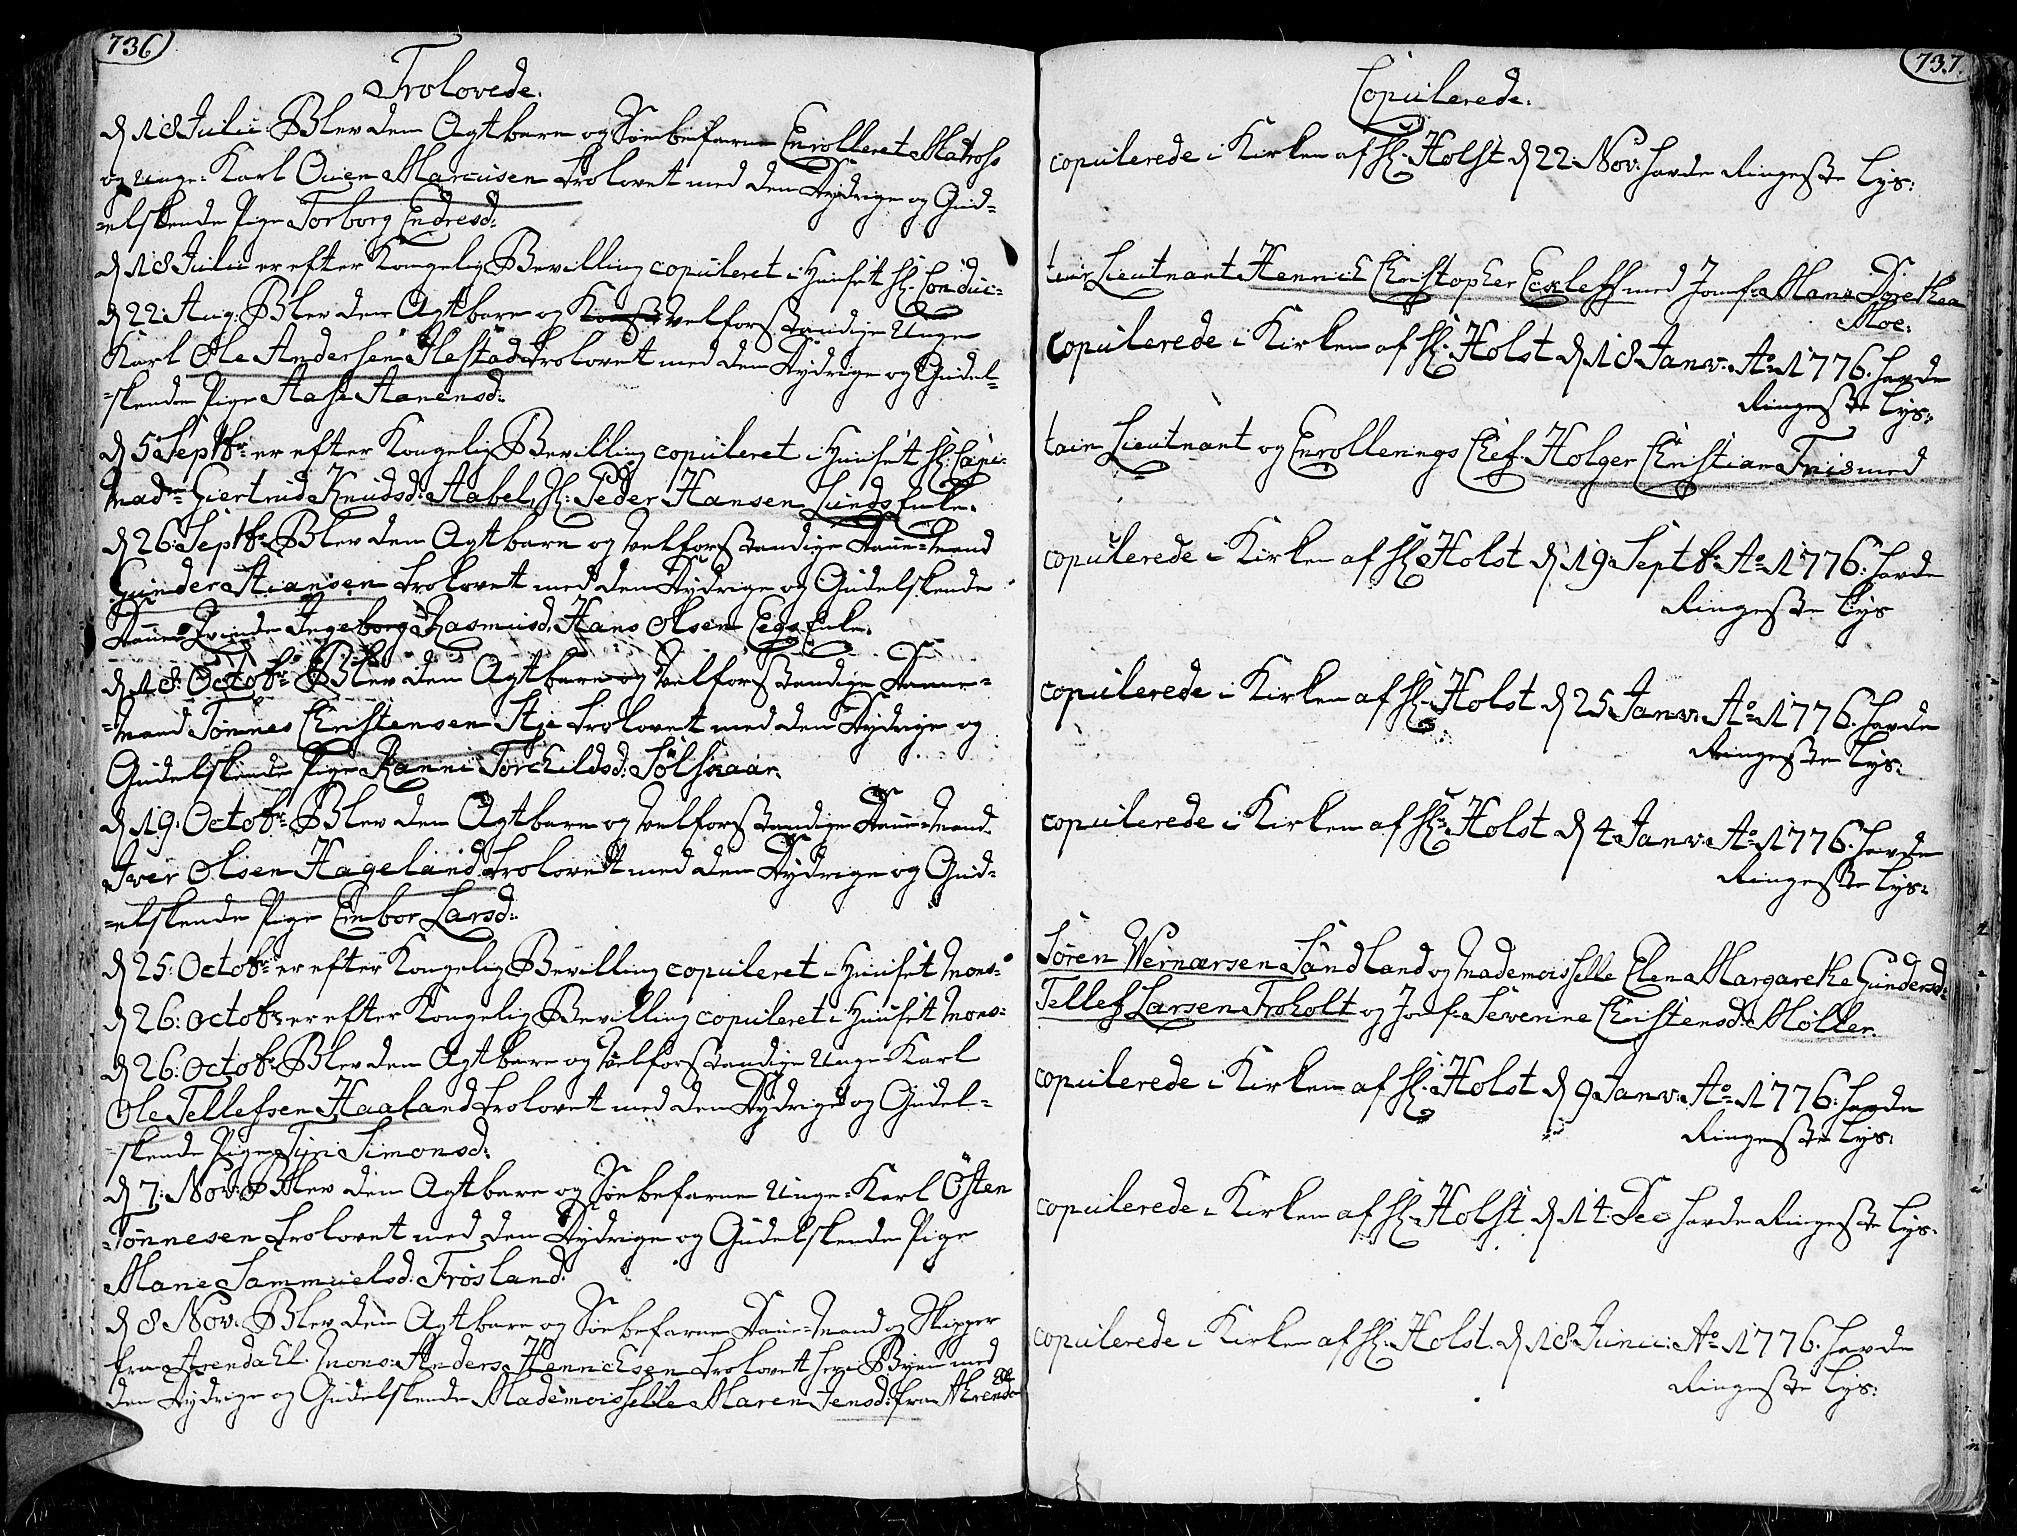 736
Trolovede.
d 18 Julii: Blev den Agtbare og Søebefarne Enrolleret Matross
og Unge-Karl Ouen Marcusen trolovet med den Dydrige og Gud-
-elskende Pige Torborg Endresd:
d 18 Julii er efter Kongelig Bevilling copuleret i Huuset Hr: Conduc-
d 22 Aug: Blev den Agtbare og Velforstandige Unge
Karl Ole Andersen Ilestad trolovet med den Dydrige og Gudel-
-skende Pige Aase Aanensd:
d 5 Septbr: er efter Kongelig Bevilling copuleret i Huuset Hr: Capi-
Madme Giertrud Knudsd: Aabel, Sl: Peder Hansen Lunds Enke.
d 26 Septbr: Blev den Agtbare og Velforstandige Danne-Mand
Gunder Stiansen trolovet med den Dydrige og Gudelskende
Danne-Qvinde Ingeborg Rasmusd: Hans Olsen Eegs Enke.
d 18: Octobr: Blev den Agtbare og Velforstandige Danne-
-Mand Tønnes Christensen Stje trolovet med den Dydrige og
Gudelskende Pige Ranni Torchildsd: Sølsnaar.
d 19: Octobr: Blev den Agtbare og Velforstandige Danne-Mand
Iver Olsen Hageland trolovet med den Dydrige og Gud-
-elskende Pige Embor Larsd:
d 25: Octobr: er efter Kongelig Bevilling copuleret i Huuset Mons:
d 26: Octobr: er efter Kongelig Bevilling copuleret i Huuset Mons:
d 26: Octobr: Blev den Agtbare og Velforstandige Unge-Karl
Ole Tellefsen Haaland trolovet med den Dydrige og Gudel-
-skende Pige Siri Simonsd:
d 7: Nov: Blev den Agtbare og Søebefarne Unge-Karl Østen
Tønnesen trolovet med den Dydrige og Gudelskende Pige
Mane Sammuelsd: Frøsland.
d 8 Nov: Blev den Agtbare og Søebefarne Danne-Mand og Skipper
fra Arendahl. Mons: Anders Hennichsen trolovet her i Byen med
den Dydrige og Gudelskende Mademoisselle Maren Jensd: fra Ahrendahl
737.
Copulerede.
copulerede i Kirken af Hr: Holst d 22 Nov: havde Ringeste Lys:
teur Lieutnant Hennich Christopher Eckleff med Jomfr: Mana Dorethea
Moe:
copulerede i Kirken af Hr: Holst d 18 Janv: Ao 1776. havde
Ringeste Lys:
tain Lieutnant og Enrollerings Chef. Holger Christian Friis med
copulerede i Kirken af Hr: Holst d 19 Septbr: Ao 1776: havde
Ringeste Lys
copulerede i Kirken af Hr: Holst d 25 Janv: Ao 1776. havde
Ringeste Lys:
copulerede i Kirken af Hr: Holst d 4 Janv: Ao 1776. havde
Ringeste Lys:
Søren Wernersen Sandland og Mademoisselle Elen Margarethe Gundersd:
Tellef Larsen Froholt og Jomfr: Severine Christensd: Møller.
copulerede i Kirken af Hr: Holst d 9 Janv: Ao 1776: havde
Ringeste Lys:
copulerede i Kirken af Hr: Holst d 14 Dec havde Ringeste Lys:
copulerede i Kirken af Hr: Holst. d 18 Junii: Ao 1776. havde
Ringeste Lys: